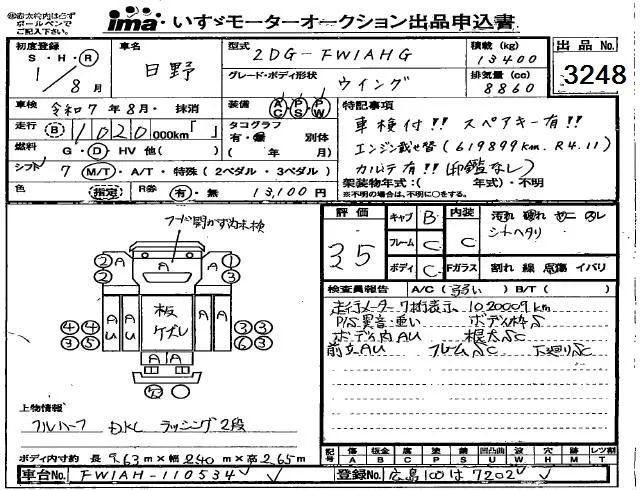 ◎赤太枠内は必ず
ボールペンで
ご記入下さい。
ima いすゞモーターオークション出品申込書
初度登録 S・H・R 1/8月
車名 日野
型式 2DG-FW1AHG
積載(kg) 13400
出品No. 3248
グレード・ボディ形状 ウイング
排気量(cc) 8860
車検 令和7年8月・抹消
装備 AC PS PW
特記事項
走行 B 1020 000km「 」
タコグラフ 有・無 別体 ( 年 月)
車検付!! スペアキー有!!
燃料 G・D・HV 他( )
エンジン載せ替(619899km. R4.11)
シフト 7 M/T・A/T・特殊(2ペダル・3ペダル)
カルテ有!!(印鑑なし)
架装物年式:( 年式)・不明
※不明の場合は、不明に○をする。
色 指定 R券 有・無 13,100円
フード開かず内未検
評価 3.5
キャブ B 内装 C 汚れ 破れ サニ スレ
シートヘタリ
フレーム C
ボディ C Fガラス 割れ 線 点傷 イバリ
検査員報告 A/C(弱い) B/T( )
走行メーター7桁表示、1020009km
P/S異音・重い ボディ枠S
ボディ内AU 根太SC
前立AU フレームSC 下廻りSC
② A A A ①
② ③
板 ケズレ
④④ AU AU AU ③③
③⑤ ⑥③
A A
上物情報
フルハーフ DKL ラッシング2段
ボディ内寸約 長9.63m×幅2.40m×高2.65m
記号 傷A 板金B 腐C 塗P 錆S 凹凸曲U 波W 穴H 跡M レンズ割T
車台No. FW1AH-110534
登録No. 広島100は7202